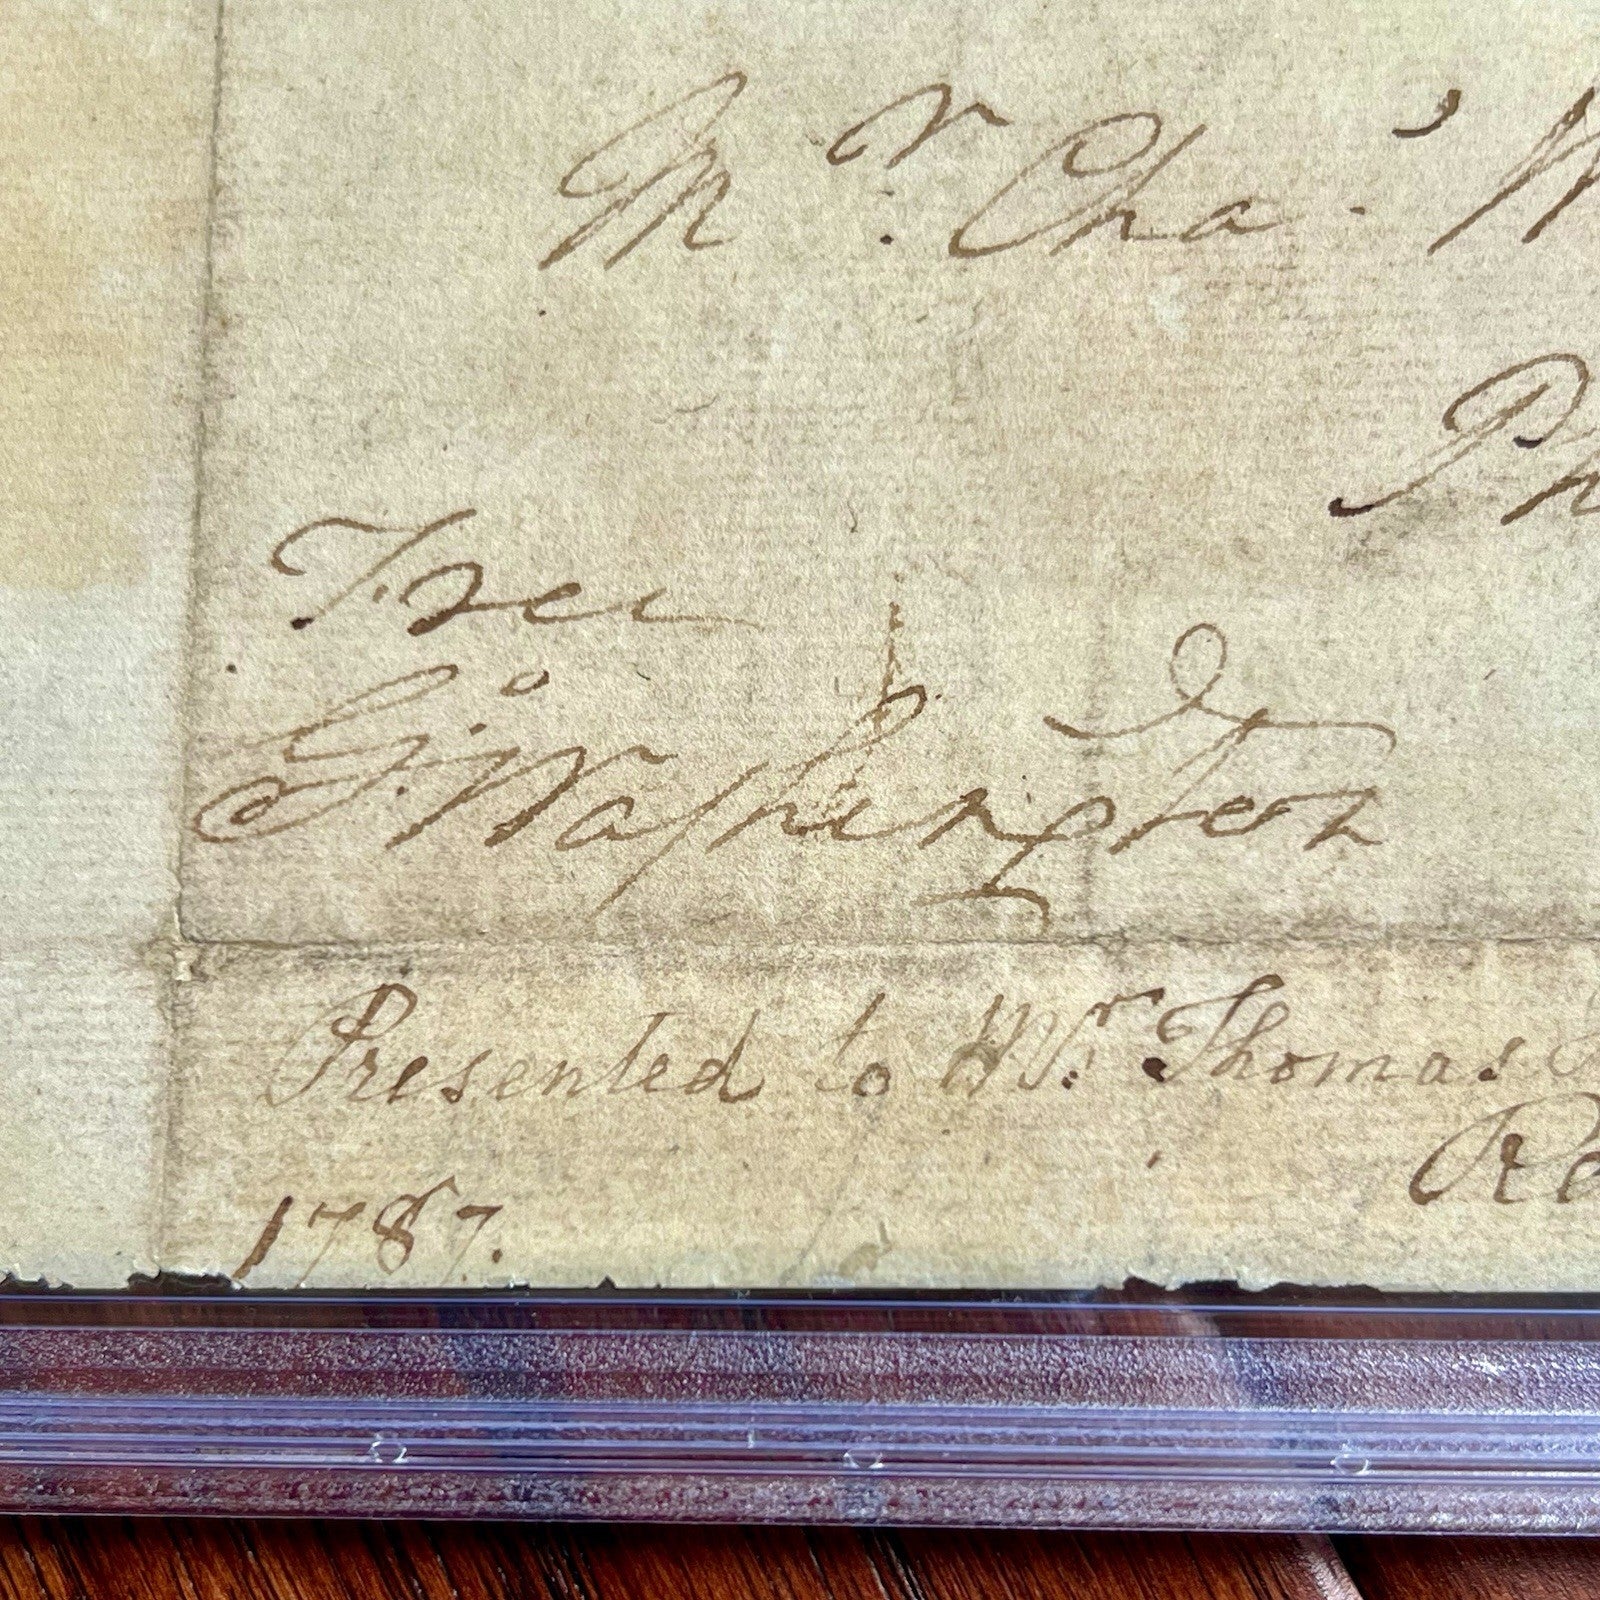 Mr. Cha.
Free
Go. Washington
Presented to Mr. Thomas
1787.